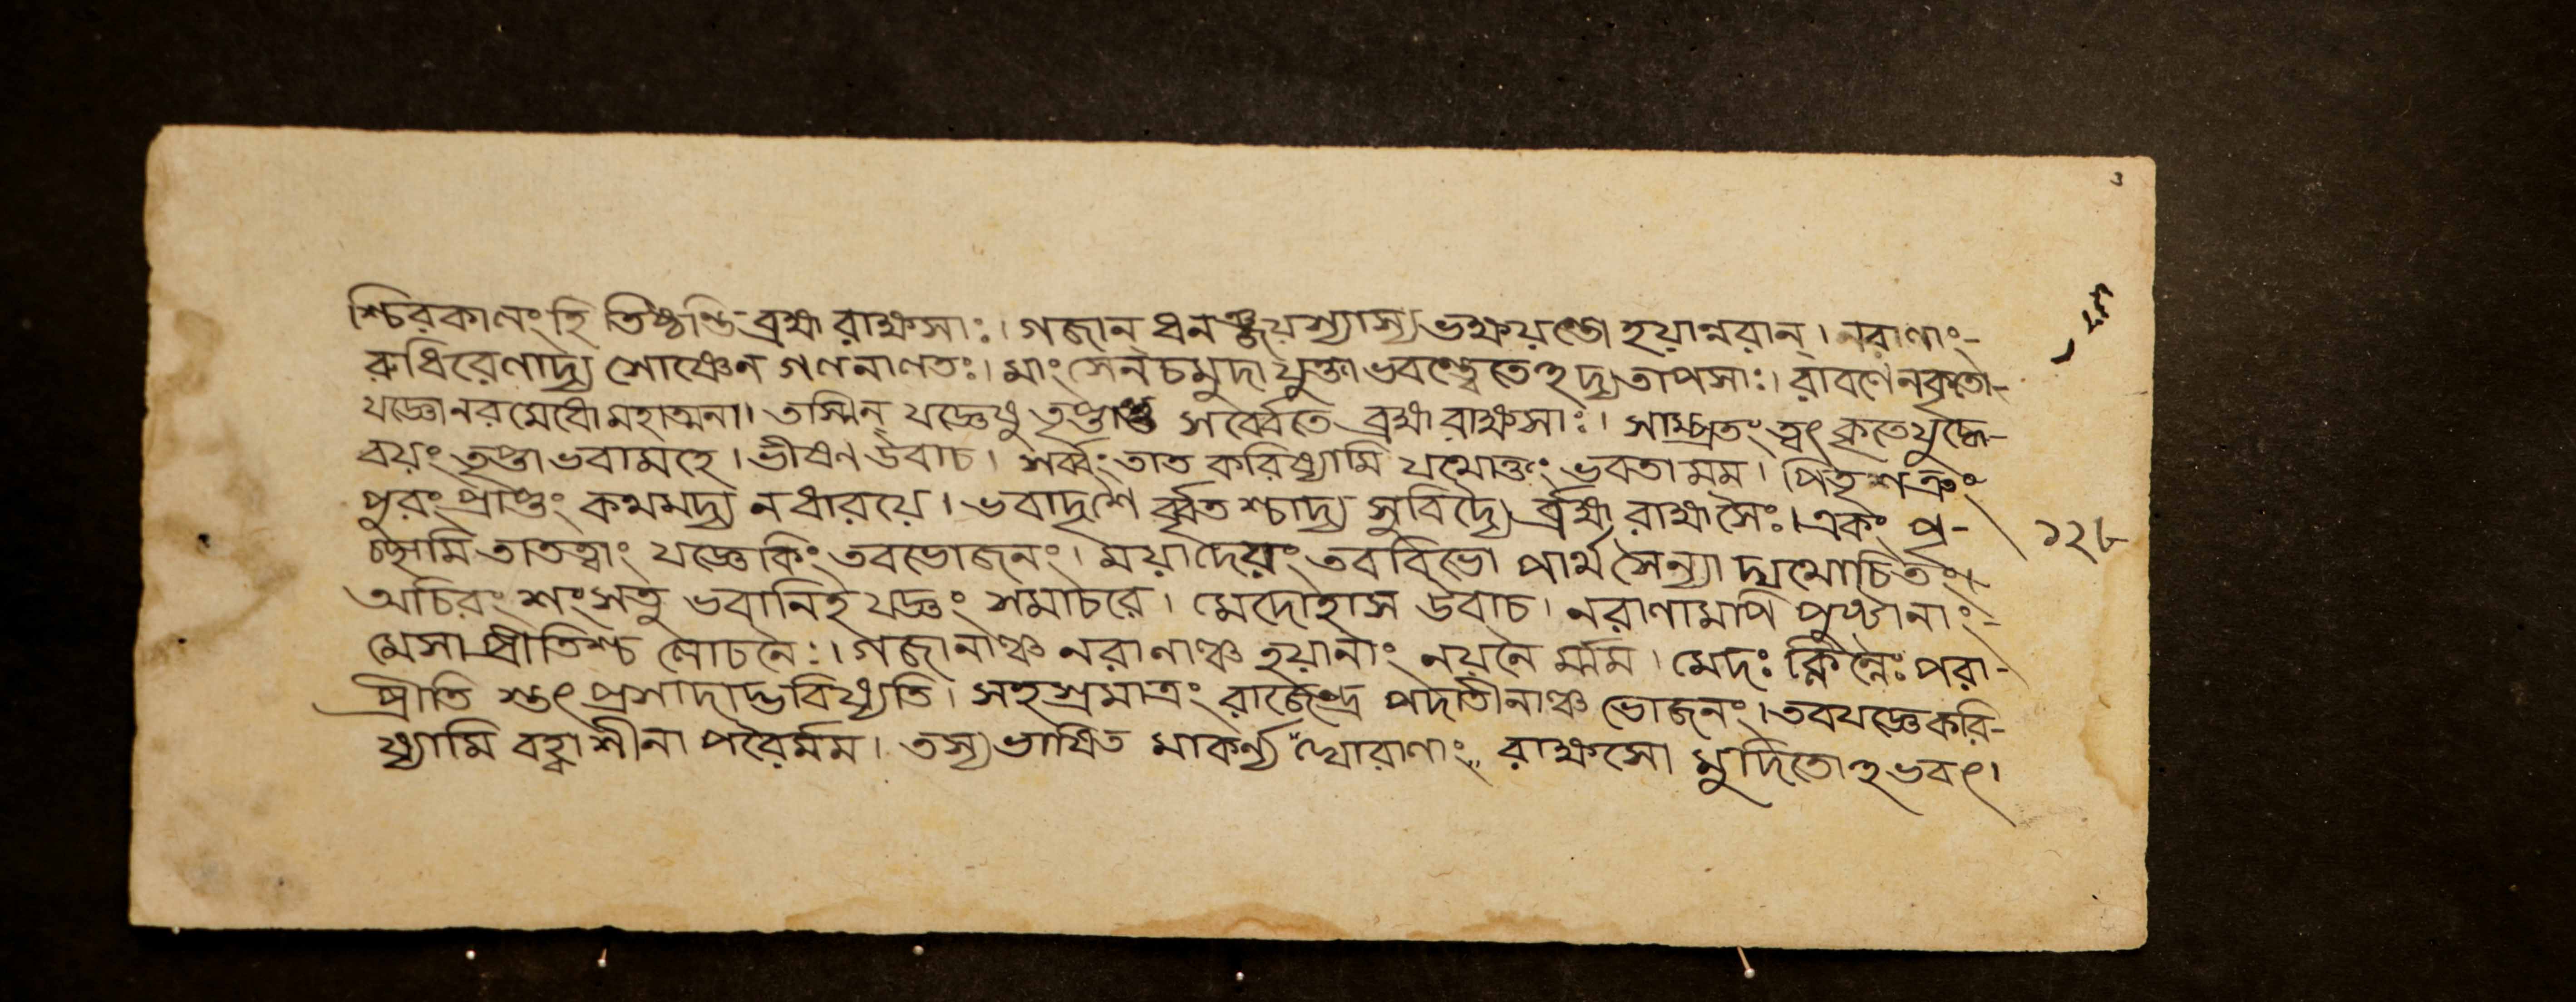 শ্চিরকালং হি তিষ্ঠন্তি ব্রহ্ম রাক্ষসাঃ। গজান্ ধনঞ্জয়শ্যাস্য ভক্ষয়ন্তো হয়ান্নরান্। নরাণাং-
রুধিরেণাদ্য শোষ্ণেন গলনালতঃ। মাংসেন চ মুদা যুক্তা ভবন্ত্বেতেহদ্য তাপসাঃ। রাবণেন কৃতো-
যজ্ঞো নরমেধো মহাত্মনা। তস্মিন্ যজ্ঞেষু তৃপ্তাস্তু সর্ব্বেতে ব্রহ্ম রাক্ষসাঃ। সাম্প্রতং ত্বৎ কৃতে যুদ্ধে-
বয়ং তৃপ্তা ভবামহে। ভীষণ উবাচ। সর্ব্বং তাত করিষ্যামি যথোক্তং ভবতা মম। পিতৃ শত্রুং
পুরং প্রাপ্তং কথমদ্য ন ধারয়ে। ভবাদৃশৈ র্ব্বৃতশ্চাদ্য সুবিদ্যৈ র্ব্রহ্ম রাক্ষসৈঃ। একং পৃ-
চ্ছামি তাতত্বাং যজ্ঞে কিং তব ভোজনং। ময়া দেয়ং তব বিভো পার্থ সৈন্যা দ্যথোচিতং।
অচিরং শংসতু ভবানিহ যজ্ঞং সমাচরে। মেদোহাস উবাচ। নরাণামপি পুষ্টানাং-
মেসা প্রীতিশ্চ লোচনৈঃ। গজানাঞ্চ নরাণাঞ্চ হয়ানাং নয়নৈ র্ম্মম। মেদঃ ক্লিন্নৈঃ পরা-
প্রীতি স্ত্বৎ প্রসাদাদ্ভবিষ্যতি। সহস্রমাত্রং রাজেন্দ্র পদাতীনাঞ্চ ভোজনং। তব যজ্ঞে করি-
ষ্যামি বহ্বাশীনা পরৈর্মম। তস্য ভাষিত মাকর্ন্য ঘোরাণাং রাক্ষসো মুদিতোহভবৎ।
১২৮
3